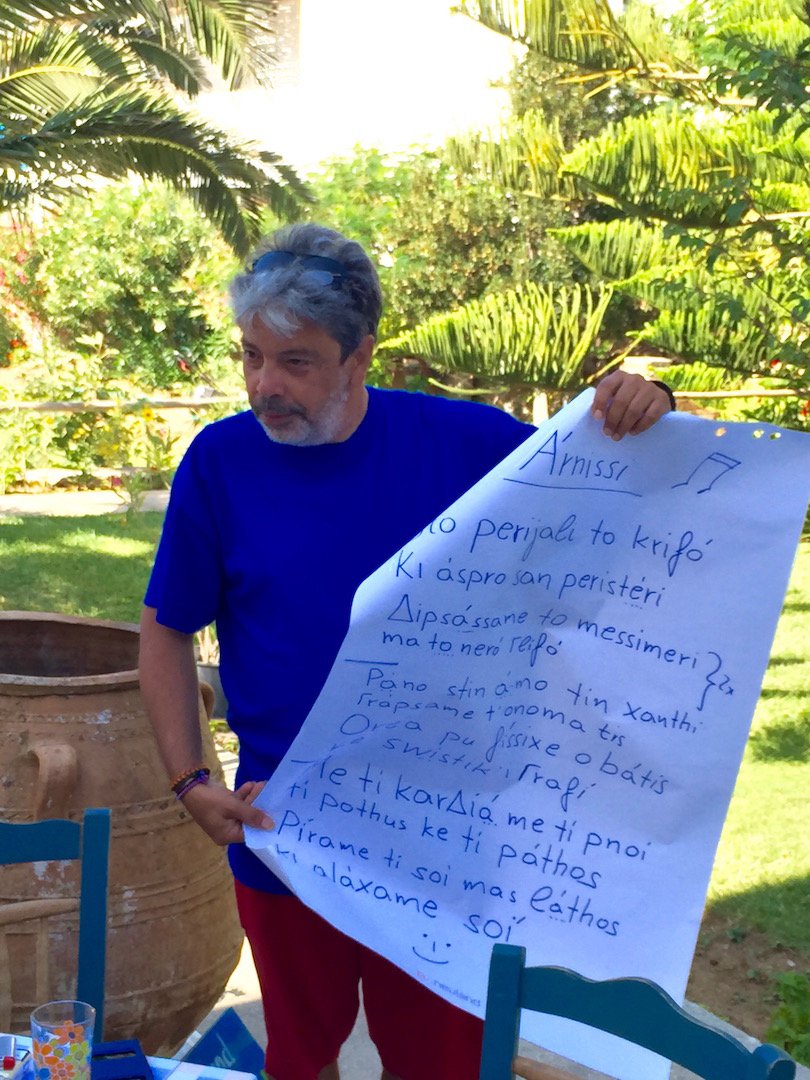 Árnissi
perijali to krifó
Ki áspro san peristéri
Δipsássane to messimeri
ma to neró Γlifó
} 2x
Páno stin ámo tin xanthi
Γrápsame t'onoma tis
Orea pu físsixe o bátis
swistik'i Γrafí
Me ti karΔiá me ti pnoi
ti pothus ke ti páthos
Pírame ti soi mas láthos
ki aláxame soí